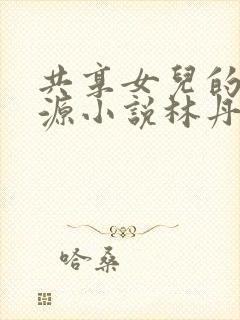 共享女兒的
源小說林丹
哈桑